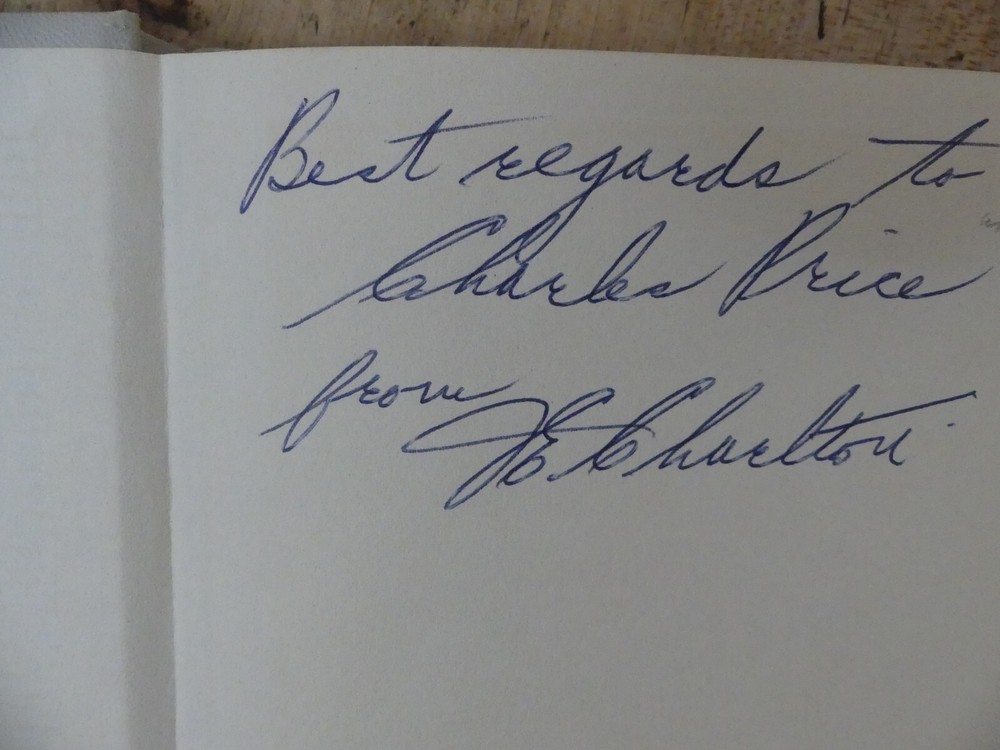 Best regards to
Charles Price
from
JE Charlton